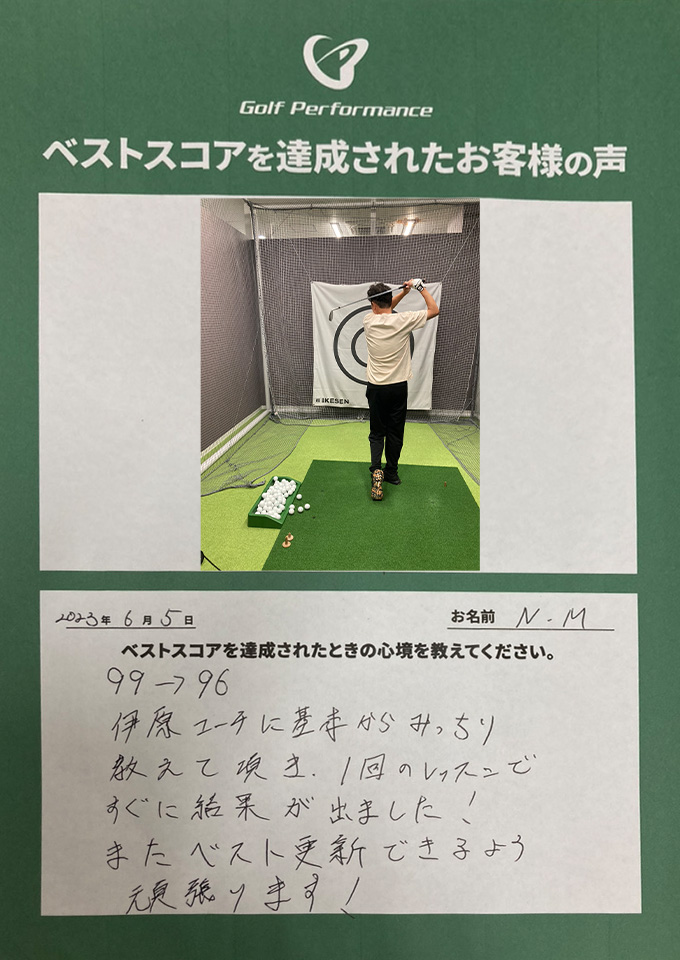 Golf Performance
ベストスコアを達成されたお客様の声
IKESEN
2023年 6月 5日
お名前 N-M
ベストスコアを達成されたときの心境を教えてください。
99→96
伊原コーチに基本からみっちり
教えて頂き、1回のレッスンで
すぐに結果が出ました!
またベスト更新できるよう
頑張ります!